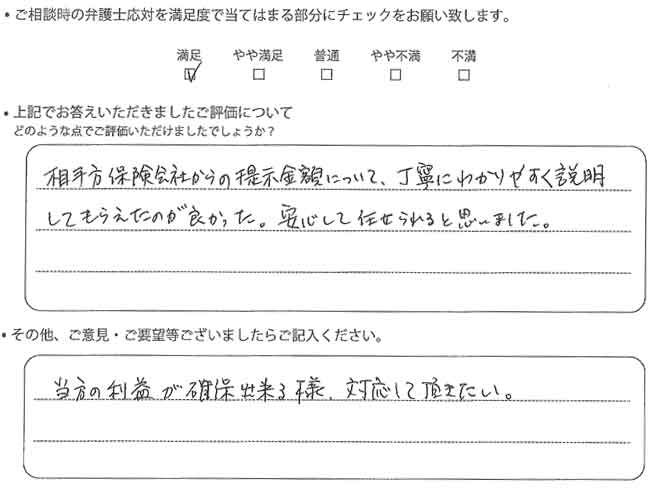 ・ご相談時の弁護士応対を満足度で当てはまる部分にチェックをお願い致します。
満足 やや満足 普通 やや不満 不満
☑ □ □ □ □
・上記でお答えいただきましたご評価について
どのような点でご評価いただけましたでしょうか？
相手方保険会社からの提示金額について、丁寧にわかりやすく説明
してもらえたのが良かった。安心して任せられると思いました。
・その他、ご意見・ご要望等ございましたらご記入ください。
当方の利益が確保出来る様、対応して頂きたい。